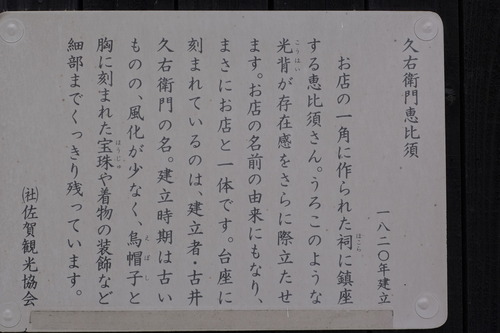 久右衛門恵比須
一八二〇年建立
お店の一角に作られた祠に鎮座
ほこら
する恵比須さん。うろこのような
光背が存在感をさらに際立たせ
こうはい
ます。お店の名前の由来にもなり、
まさにお店と一体です。台座に
刻まれているのは、建立者・古井
久右衛門の名。建立時期は古い
ものの、風化が少なく、烏帽子と
とぼし
胸に刻まれた宝珠や着物の装飾など
ほうじゅ
細部までくっきり残っています。
㈳佐賀観光協会